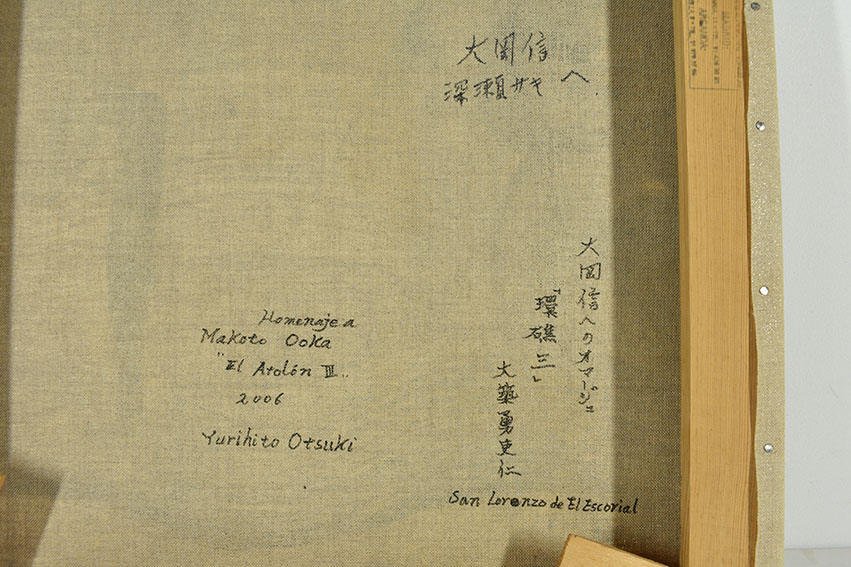 大岡信
深瀬サキ へ
大岡信へのオマージュ
「環礁三」
大築勇吏仁
San Lorenzo de El Escorial
Homenaje a
Makoto Ooka
"El Atolón III"
2006
Yurihito Otsuki